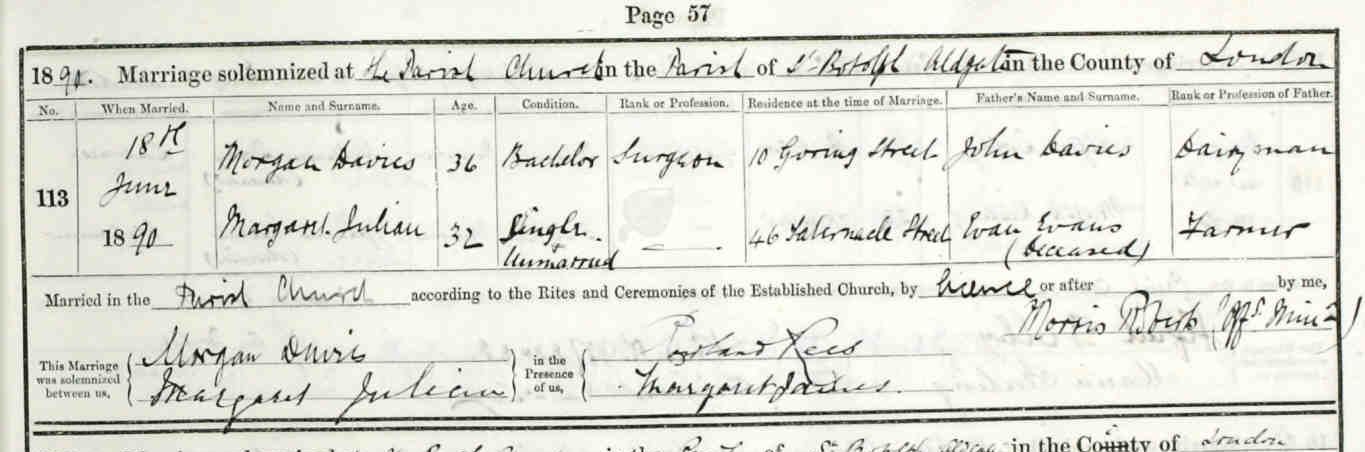 Page 57
1890. Marriage solemnized at the Parish Church in the Parish of St Botolph Aldgate in the County of London
No. When Married. Name and Surname. Age. Condition. Rank or Profession. Residence at the time of Marriage. Father's Name and Surname. Rank or Profession of Father.
18th
Morgan Davies 36 Bachelor Surgeon 10 Goring Street John Davies Dairyman
June
113
1890 Margaret Julian 32 Single & 46 Tabernacle Street Evan Evans Farmer
Unmarried (Deceased)
Married in the Parish Church according to the Rites and Ceremonies of the Established Church, by licence or after by me,
Morris Roberts (Offg Minr)
This Marriage was solemnized between us, Morgan Davies in the Presence of us, Rees
Margaret Julian Margaret James
in the County of London